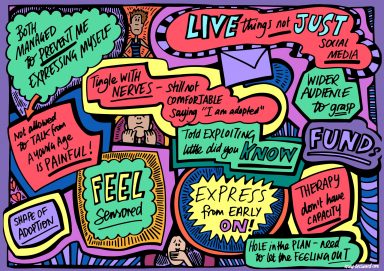 BOTH
MANAGED
to PREVENT ME
EXPRESSING MYSELF
LIVE things not JUST
SOCIAL
MEDIA
Tingle WITH
NERVES - still not
COMFORTABLE
Saying "I am adopted"
WIDER
AUDIENCE
to grasp
Not allowed
to TALK from
A young Age
is PAINFUL!
Told EXPLOITING
little did you KNOW
FUND.
FEEL
Censored
EXPRESS
from EARLY
ON!
THERAPY
don't have
CAPACITY
SHAPE OF
ADOPTION
HOLE in the PLAN - need
to let the FEELING OUT